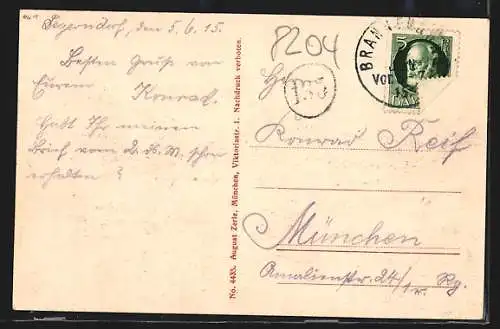 Degerndorf, den 5./6. 15.
Besten Gruß von
Eurem Konrad.
Habt Ihr meinen
Brief vom 2. ds. M. schon
erhalten?
No. 4485. August Zerle, München, Viktoriastr. 1. Nachdruck verboten.
8204
BRANNENBURG
5
VOR
15
BAYERN
Konrad Reif
München
Amalienstr. 24/1 r. Rg.